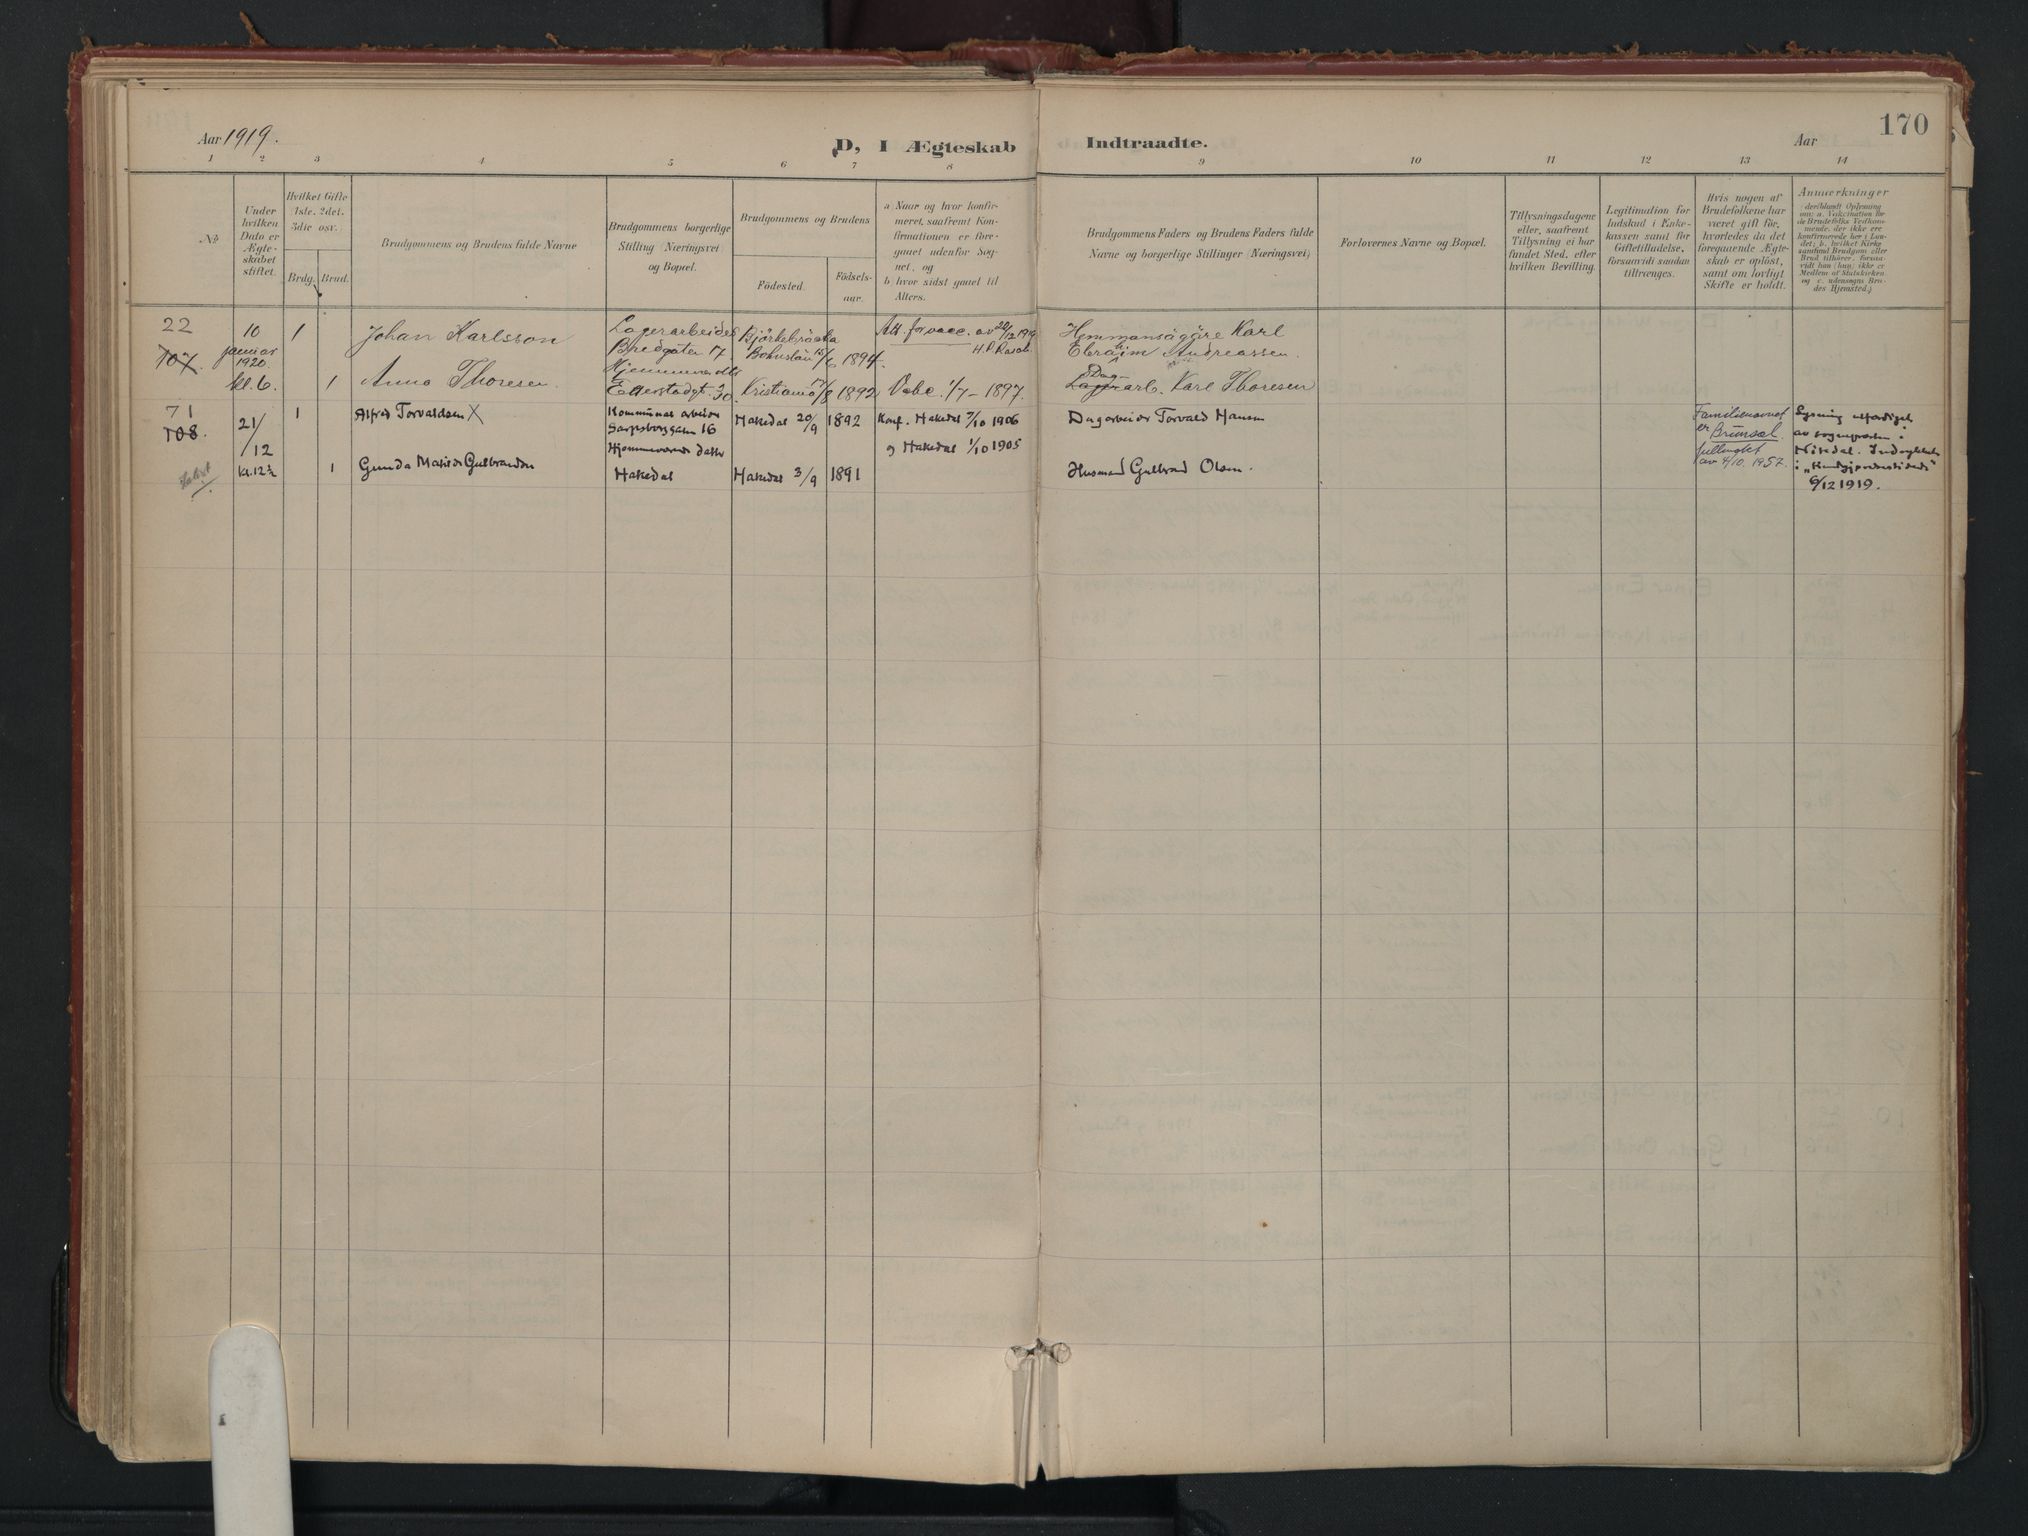 Aar 1919.
D, I Ægteskab Indtraadte.
Aar
170
1 2 3 4 5 6 7 8 9 10 11 12 13 14
No
Under
hvilken
Dato er
Ægte-
skabet
stiftet.
Hvilket Gifte
1ste. 2det.
3die osv.
Brdg. Brud.
Brudgommens og Brudens fulde Navne
Brudgommens borgerlige
Stilling (Næringsvei)
og Bopæl.
Brudgommens og Brudens
Födested.
Födsels-
aar.
a) Naar og hvor konfir-
meret, saafremt Kon-
firmationen er fore-
gaaet udenfor Sog-
net, og
b) hvor sidst gaaet til
Alters.
Brudgommens Faders og Brudens Faders fulde
Navne og borgerlige Stillinger (Næringsvei)
Forlovernes Navne og Bopæl.
Tillysningsdagene
eller, saafremt
Tillysning ei har
fundet Sted, efter
hvilken Bevilling.
Legitimation for
Indskud i Enke-
kassen samt for
Giftetilladelse,
forsaavidt saadan
tiltrænges.
Hvis nogen af
Brudefolkene har
været gift för,
hvorledes da det
foregaaende Ægte-
skab er oplöst,
samt om lovligt
Skifte er holdt.
Anmærkninger
(deriblandt Oplysning
om: a. Vaccination for
de Brudefolks Vedkom-
mende, der ikke ere
konfirmerede her i Lan-
det; b. hvilket Kirke-
samfund Brudgom eller
Brud tilhører, forsaa-
vidt han (hun) ikke er
Medlem af Statskirken
og c. udensogns Bru-
des Hjemsted.)
22
107.
10
januar
1920
kl. 6.
1
Johan Karlsson
Lagerarbeider
Bredgaten 17.
Björkebräcka
Bohuslän 15/6 1894.
Att. for vacc. av 20/12 1919
Hemmansägare Karl
Efraim Andreassen.
1
Anna Thoresen
Hjemmev. dtr
Egerstadgt. 30.
Kristiania 17/8 1892
Vabc. 1/7 - 1897.
Dag-
Lagerarb. Karl Thoresen
71
108.
21/
/12
kl. 12½
1
Alfred Torvaldsen X
Kommunal arbeider
Sarpsborggaten 16
Hakedal 20/9 1892
Konf. Hakedal 7/10 1906
Dagarbeider Torvald Hansen
Familienavnet
er Brünsal.
av 4/10. 1957.
Lysning utfærdiget
av sognepresten i
Nitedal.
6/12 1919.
1
Gunda Matilde Gulbrandsen
Hjemmeværende datter
Hakedal
Hakedal 3/9 1891
Hakedal 1/10 1905
Husmand Gulbrand Olsen.